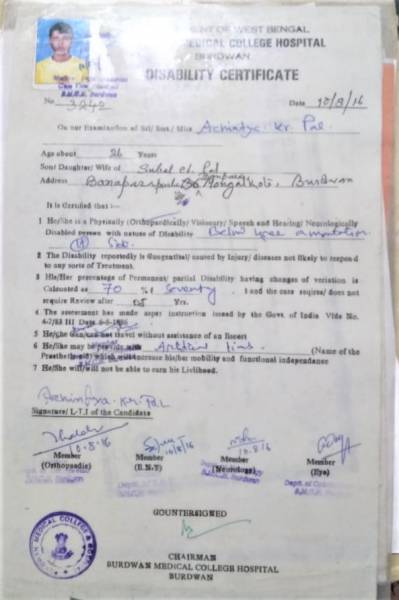 MENT OF WEST BENGAL
MEDICAL COLLEGE HOSPITAL
BURDWAN
DISABILITY CERTIFICATE
No 3242
Date 10/8/16
On our Examination of Sri/ Smt./ Miss Achintya Kr Pal
Age about 26 Years
Son/ Daughter/ Wife of Pal
Address Mongalkote, Burdwan
It is Certified that :—
1 He/She is a Physically (Orthopaedically/ Viscoury/ Speech and Hearing/ Neurologically
Disabled person with nature of Disability Below knee amputation
(Lt) Side
2 The Disability reportedly is Congenital/ caused by Injury/ diseases not likely to respond
to any sorts of Treatment.
3 His/Her percentage of Permanent/ Partial Disability having changes of variation is
Calculated as 70 %( Seventy ) and the case requires/ does not
require Review after 05 Yrs.
4 The assessment has made asper instruction issued by the Govt. of India Vide No.
4-7/83 III Date 6-8-1986
5 He/She can/can not travel without assistance of an Escort
6 He/She may be provided with Artificial limb (Name of the
Prosthetic aid) which will increase his/her mobility and functional independence
7 He/She will/will not be able to earn his Livlihood.
Achintya Kr. Pal
Signature/ L-T.I of the Candidate
10-8-16
10/8/16
10.8.16
Member Member Member Member
(Orthopaedic) (E.N.T) (Neurology) (Eye)
COUNTERSIGNED
CHAIRMAN
BURDWAN MEDICAL COLLEGE HOSPITAL
BURDWAN
BURDWAN MEDICAL COLLEGE & HOSPITAL